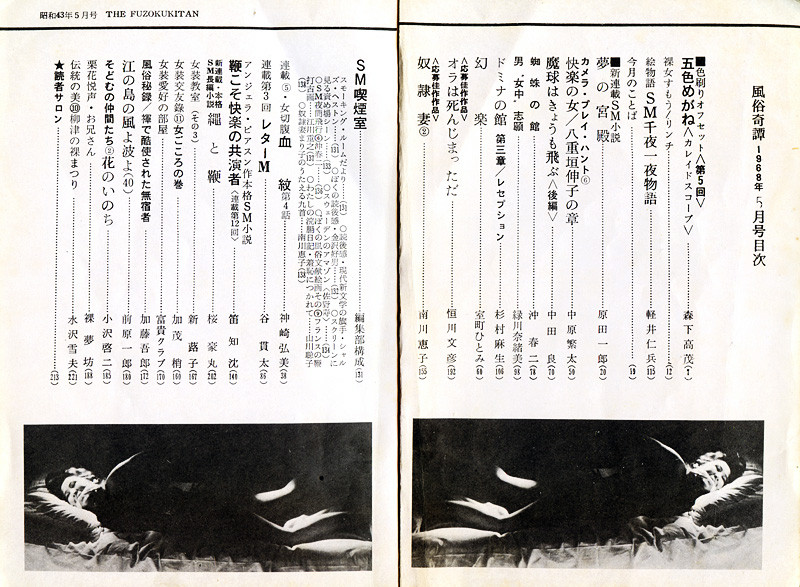 昭和43年5月号 THE FUZOKUKITAN
風俗奇譚 1968年 5月号目次
■色刷りオフセット〈第5回〉
五色めがね〈カレイドスコープ〉 森下高茂
裸女すもう/リンチ (12)
絵物語 SM千夜一夜物語 軽井仁兵 (15)
今月のことば (19)
■新連載SM小説
夢の宮殿 原田一郎 (20)
カメラ・プレイ・ハント⑥
快楽の女/八重垣伸子の章 中原繁太 (50)
魔球はきょうも飛ぶ〈後編〉 中田良 (70)
蜘蛛の館 沖春二 (78)
男〝女中〟志願 緑川奈緒美
ドミナの館 第三章/レセプション 杉村麻生 (106)
幻楽 室町ひとみ (60)
〈応募佳作作品〉
オラは死んじまっただ 恒川文彦 (192)
〈応募佳作作品〉
奴隷妻② 南川恵子 (155)
SM喫煙室 編集部構成 (131)
スモーキング・ルームだより (131) ○読後感・現代新文学の旗手・シャル
連載⑤・女切腹 血紋 第4話 神崎弘美
連載第3回 レターM 谷貫太
アンジェラ・ピアスン作本格SM小説
鞭こそ快楽の共演者〈連載第12回〉 笛知沈 (140)
新連載・本格
SM長編小説 縄と鞭 桜豪丸 (202)
女装教室(その3) 新蕗子 (167)
女装交友録⑪女ごころの巻 加茂梢 (160)
女装愛好の部屋 富貴クラブ (170)
風俗秘録/褌で酷使された無宿者 加藤吾郎 (172)
江の島の風よ波よ(40) 前原一郎 (180)
そどむの仲間たち②花のいのち 小沢啓二 (185)
栗花悦声・お兄さん 裸夢坊 (188)
伝統の美⑩柳津の裸まつり 水沢雪夫 (221)
★読者サロン (213)